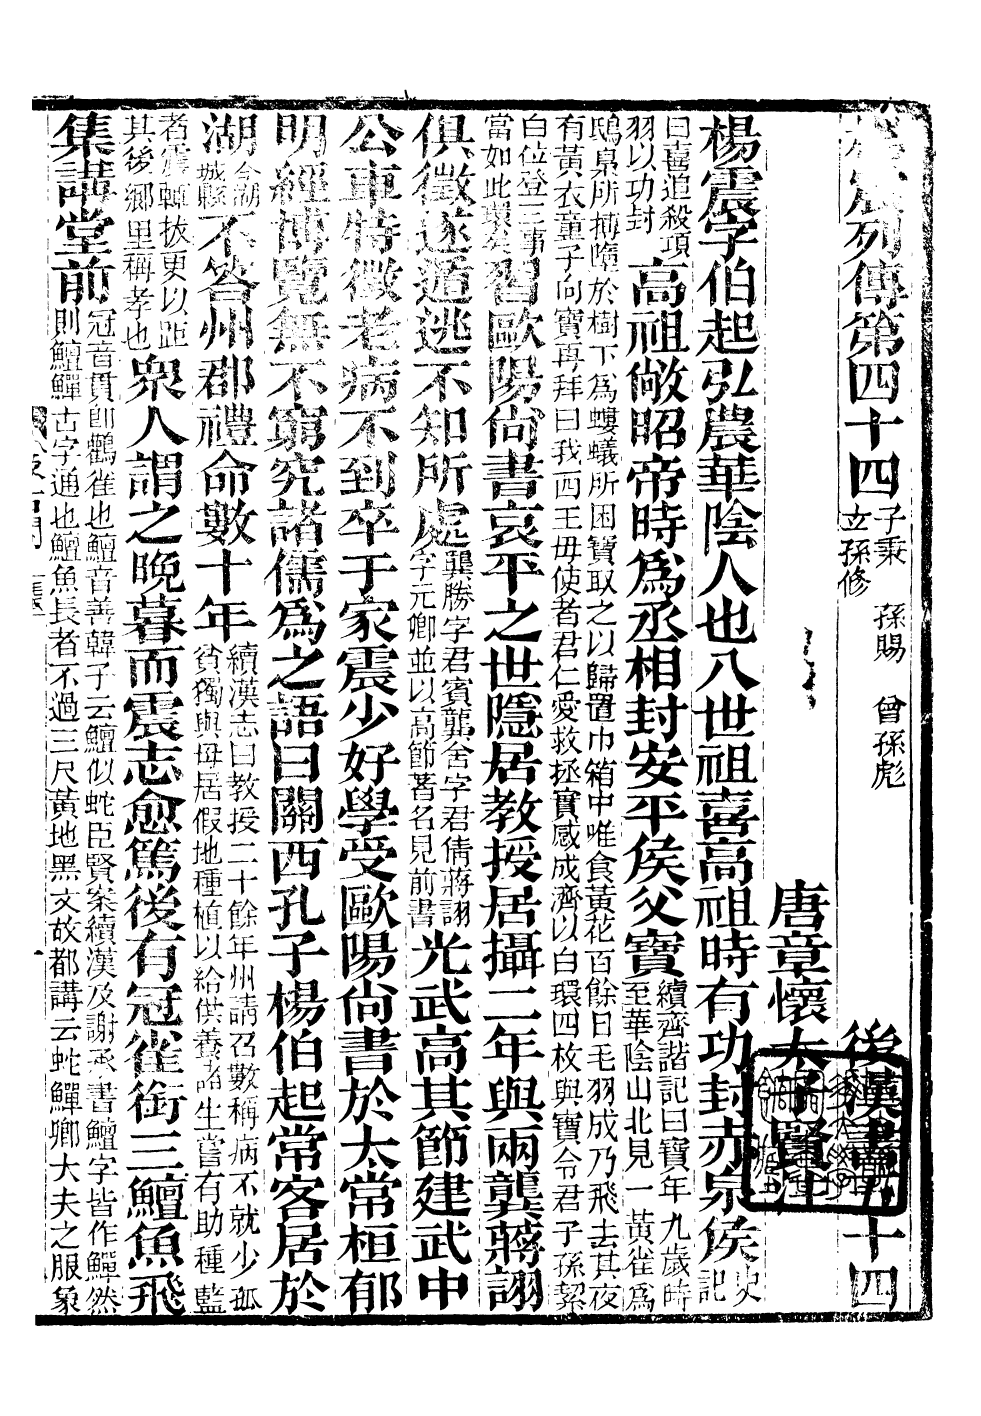 楊震列傳第四十四 子秉 孫賜 曾孫彪 立孫修 後漢書五十四
唐章懷太子賢注
楊震字伯起弘農華陰人也八世祖喜高祖時有功封赤泉侯 史記
曰喜追殺項羽以功封 高祖敞昭帝時爲丞相封安平侯父寶 續齊諧記曰寶年九歲時至華陰山北見一黃雀爲
鴟梟所搏墮於樹下爲螻蟻所困寶取之以歸置巾箱中唯食黃花百餘日毛羽成乃飛去其夜
有黃衣童子向寶再拜曰我西王母使者君仁愛救拯實感成濟以白環四枚與寶令君子孫絜
白位登三事當如此環矣 習歐陽尚書哀平之世隱居教授居攝二年與兩龔蔣詡
俱徵遂遁逃不知所處 龔勝字君賓龔舍字君倩蔣詡字元卿並以高節著名見前書 光武高其節建武中
公車特徵老病不到卒于家震少好學受歐陽尚書於太常桓郁
明經博覽無不窮究諸儒爲之語曰關西孔子楊伯起常客居於
湖 今湖城縣 不答州郡禮命數十年 續漢志曰教授二十餘年州請召數稱病不就少孤貧獨與母居假地種植以給供養諸生嘗有助種藍
者震輒拔更以距其後鄉里稱孝也 眾人謂之晚暮而震志愈篤後有冠雀銜三鱣魚飛
集講堂前 冠音貫即鸛雀也鱣音善韓子云鱣似蛇臣賢案續漢及謝承書鱣字皆作鱓然則鱣鱓古字通也鱣魚長者不過三尺黃地黑文故都講云蛇鱓卿大夫之服象